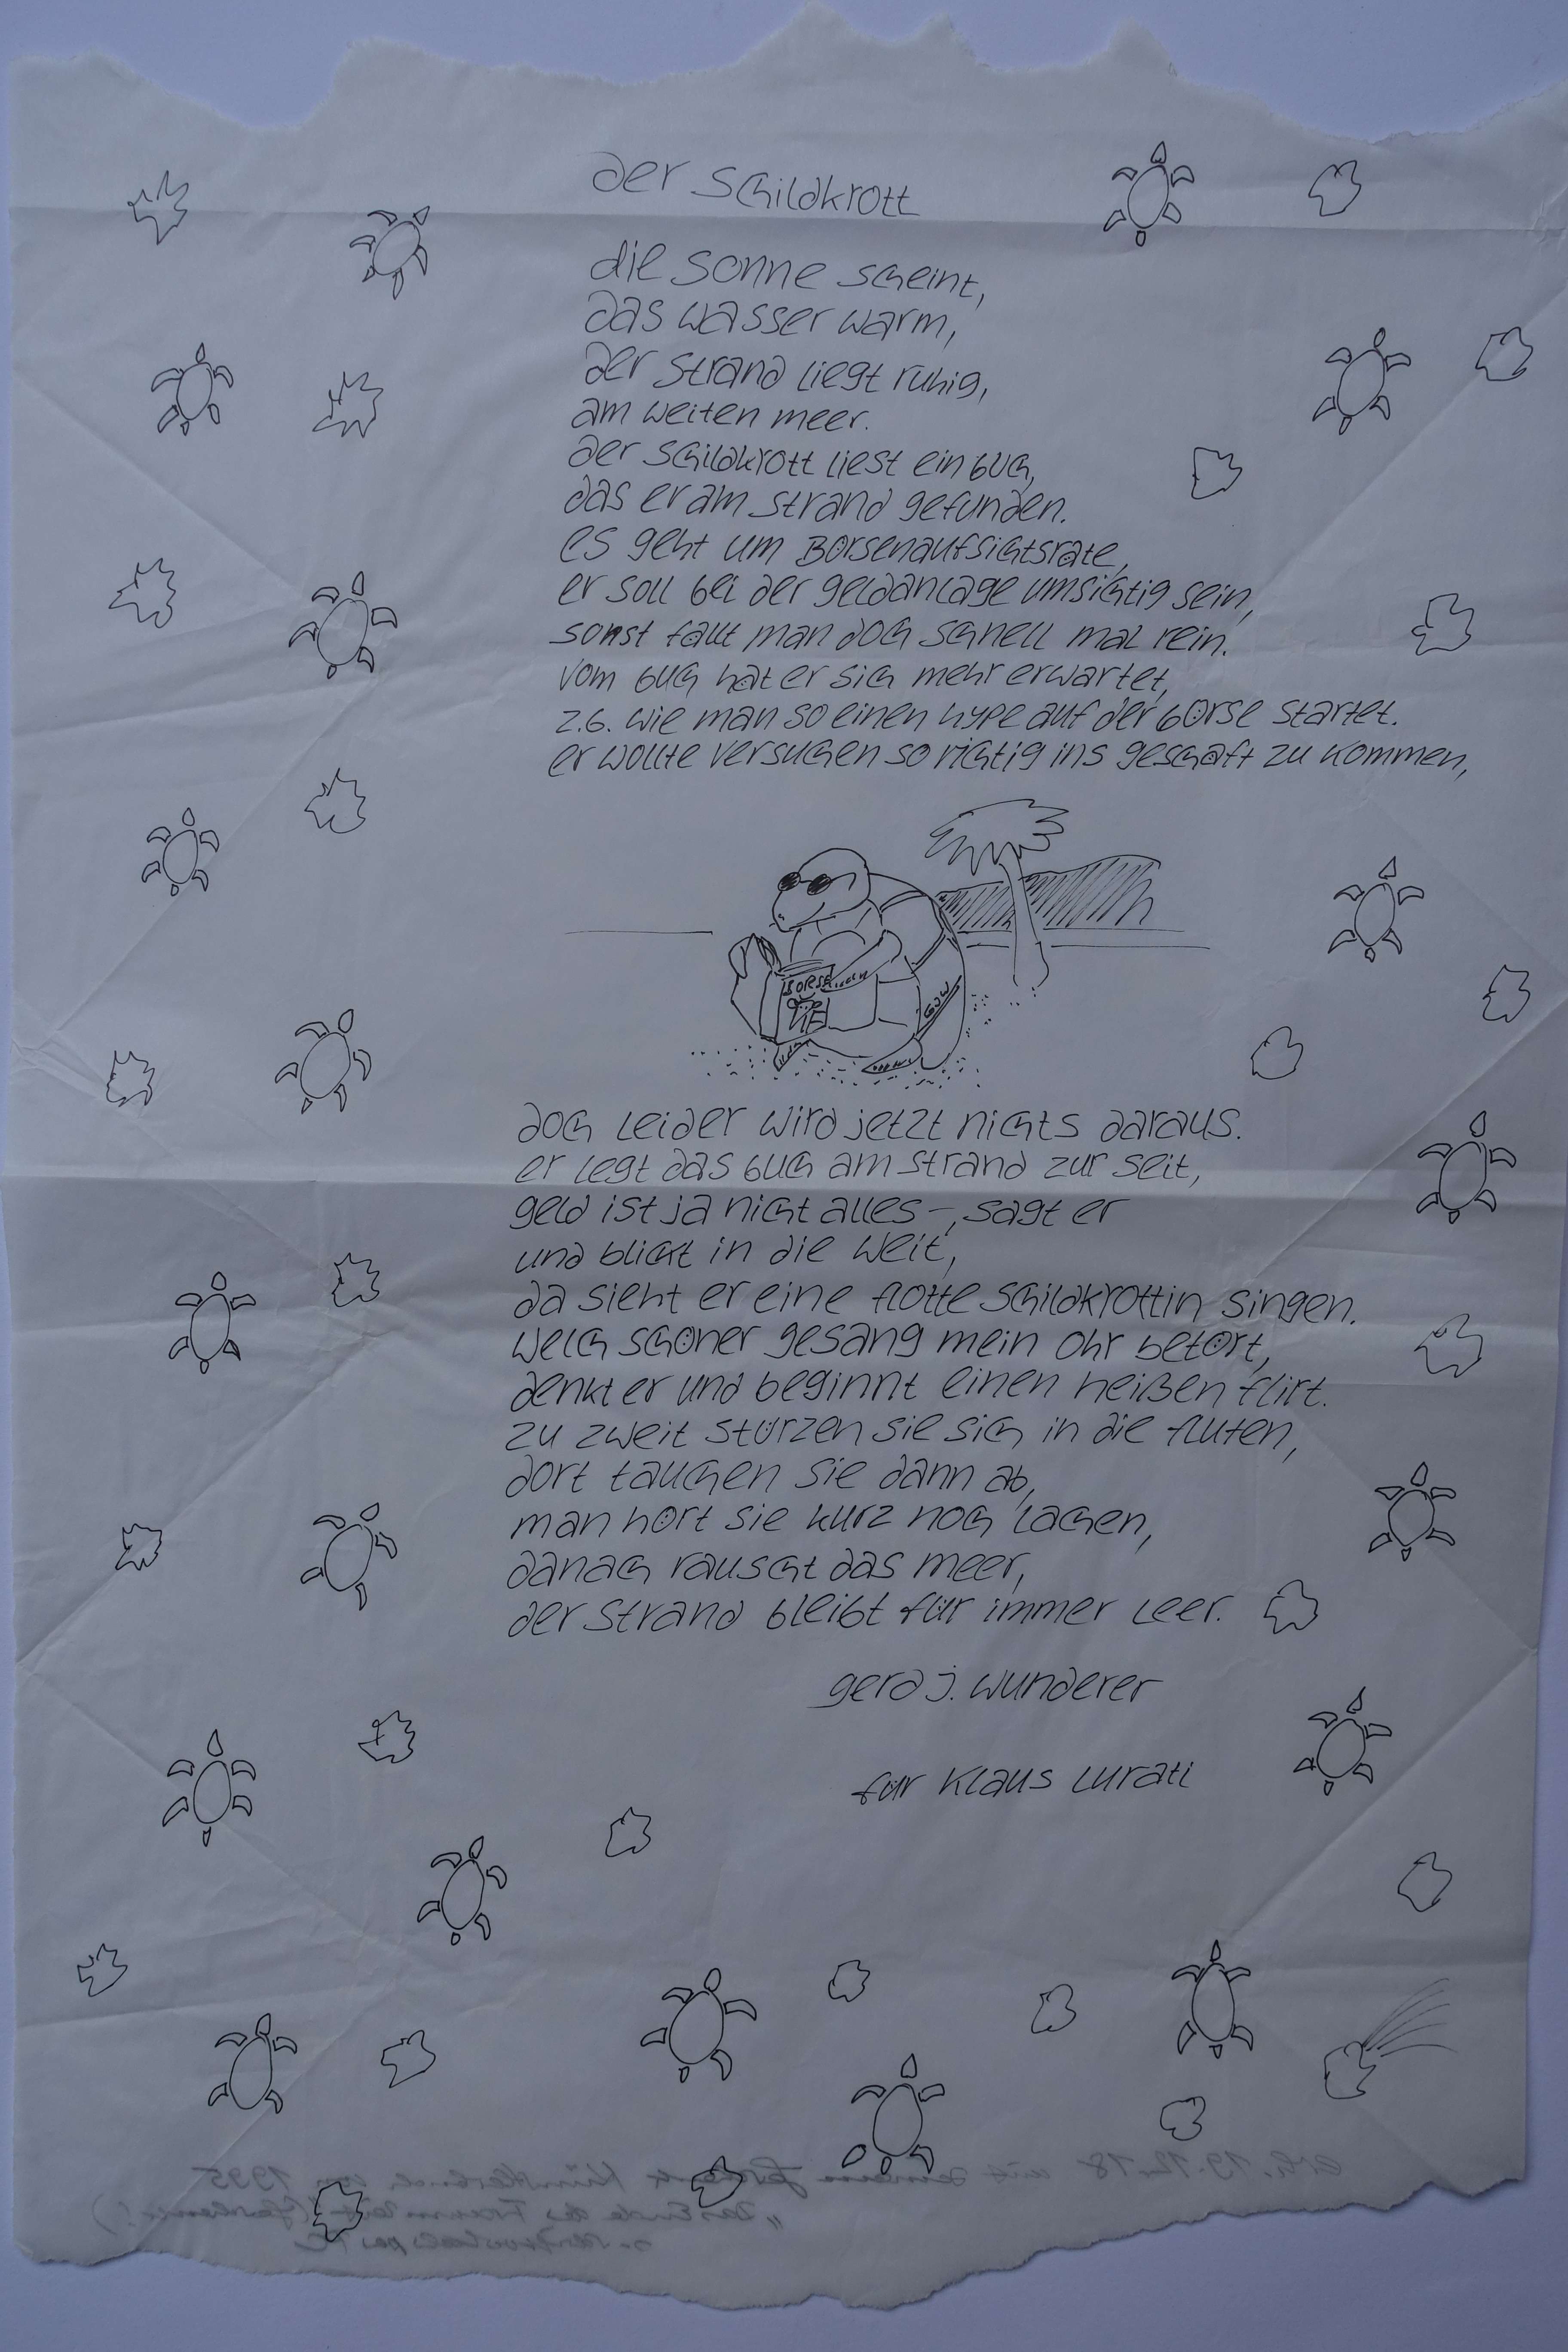 der schildkrott
die sonne scheint,
das wasser warm,
der strand liegt ruhig,
am weiten meer.
der schildkrott liest ein buch,
das er am strand gefunden.
es geht um Börsenaufsichtsräte,
er soll bei der geldanlage umsichtig sein,
sonst fällt man doch schnell mal rein.
vom buch hat er sich mehr erwartet,
z.b. wie man so einen hype auf der börse startet.
er wollte versuchen so richtig ins geschäft zu kommen,
BÖRSE
GJW
doch leider wird jetzt nichts daraus.
er legt das buch am strand zur seit,
geld ist ja nicht alles –, sagt er
und blickt in die weit,
da sieht er eine flotte schildkrottin singen.
welch schöner gesang mein ohr betört,
denkt er und beginnt einen heißen flirt.
zu zweit stürzen sie sich in die fluten,
dort tauchen sie dann ab,
man hört sie kurz noch lachen,
danach rauscht das meer,
der strand bleibt für immer leer.
gerd j. wunderer
für Klaus Lurati
19.12.18 mit Künstlerbuch von 1995
"Das Ende der